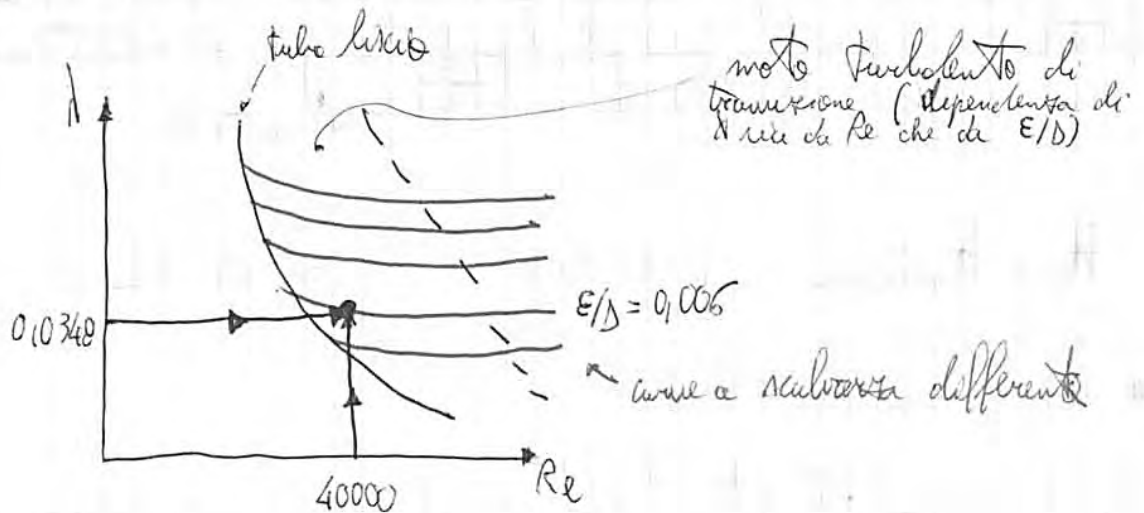 tubo liscio
moto turbolento di
transizione (dipendenza di
λ sia da Re che da ε/D)
λ
0,0348
ε/D = 0,006
curve a scabrezza differente
Re
40000